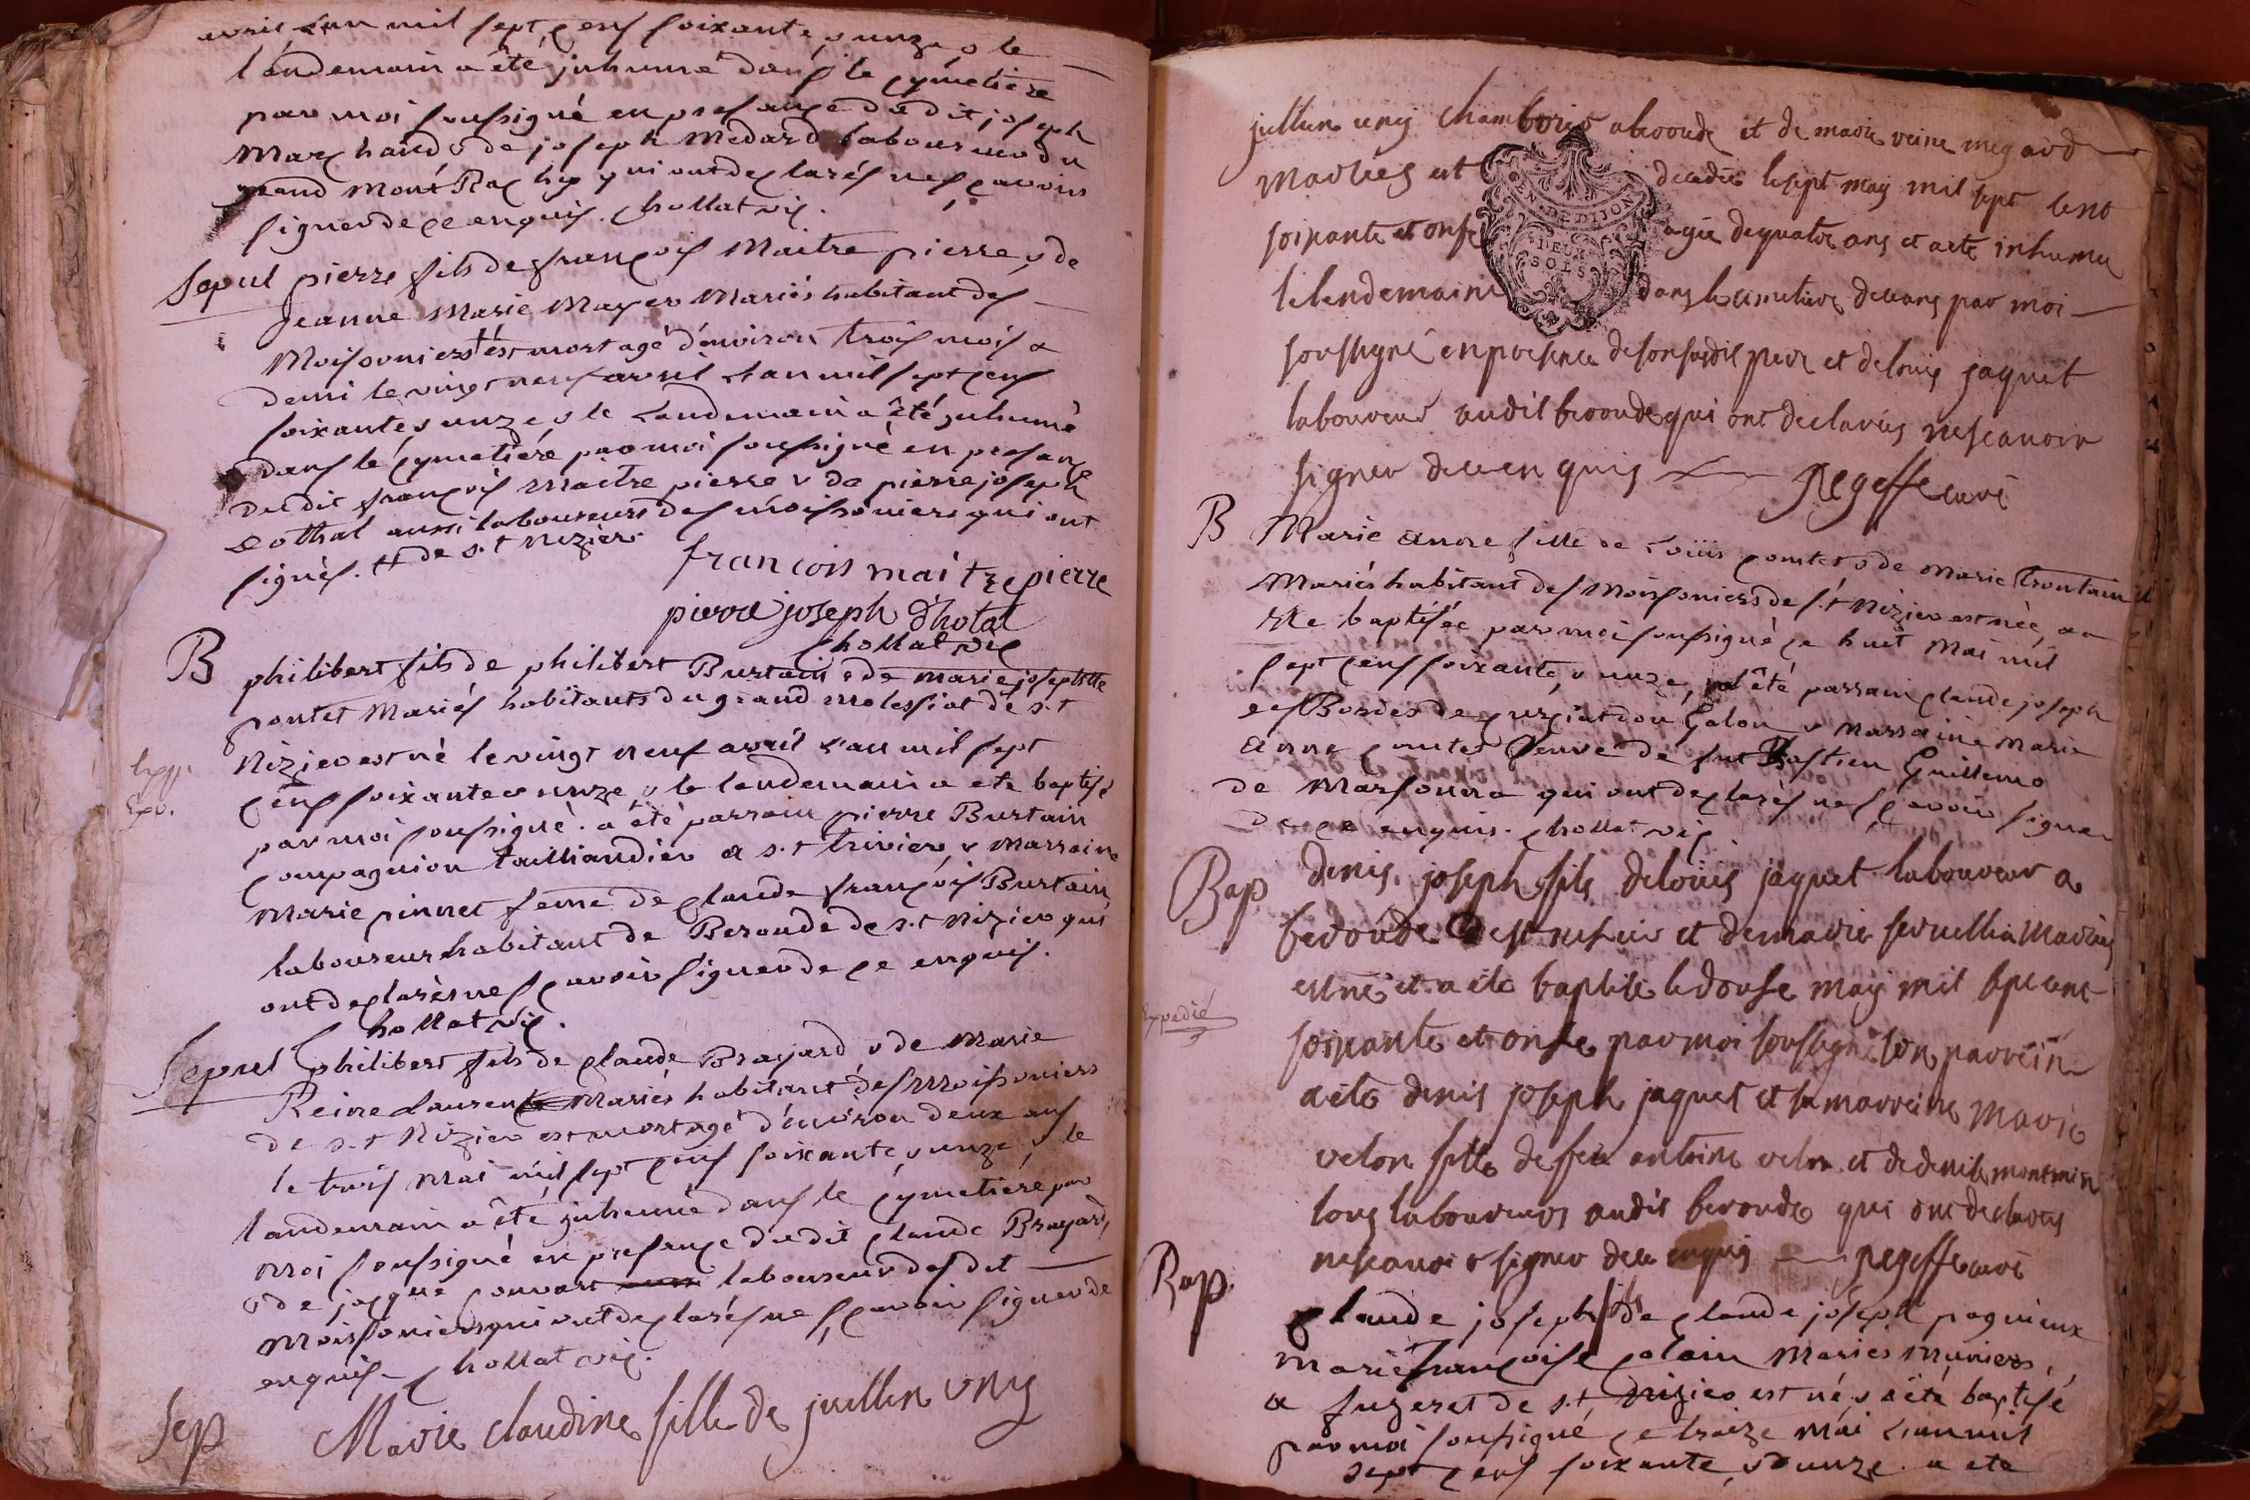 avril L'an mil sept cens soixante, v unze v le
l'endemain a été jnhumé dans le cymetière
par moi soussigné en presance du dit joseph
Marchand v de joseph Medard laboureur du
grand Mont qui ont declarés ne sçavoir
signer de ce enquis. Chollat vic.
Sepul pierre fils de françois Maitre pierre, v de
Jeanne Marie Mayer Mariés habitant des
Moissoniers est mort agé d'environ trois mois &
demi le vingt neuf avril L'an mil sept cens
soixante, v unze, v le Landemain a été jnhumé
dans le cymetière par moi soussigné en presance
du dit françois maitre pierre v de pierre joseph
Dothal aussi laboureurs des moissoniers qui ont
signés. # de s.t Nizier.
francois maitre pierre
pierre joseph d'hotal
Chollat vic
B philibert fils de philibert Burtain v de marie josephtte
pontet Mariés habitants du grand molessiat de s.t
Nizier est né le vingt neuf avril L'an mil sept
cens soixante v unze, v le lendemain a été baptisé
par moi soussigné. a été parrain pierre Burtain
compagnion tailliandier a s.t trivier, v Marraine
Marie pinnet feme de claude françois Burtain
laboureur habitant de Beronde de s.t Nizier qui
ont declarés ne sçavoir signer de ce enquis.
Chollat vic.
Sepul philibert fils de claude Brayard, v de Marie
Reine Laurent Mariés habitant des Moissoniers
de s.t Nizier est mort agé d'environ deux ans
le trois Mai mil sept cens soixante, v unze, v le
landemain a été jnhumé dans le cymetière par
moi soussigné en presance du dit claude Brayard,
v de jacque couvart laboureur des dit
Moissoniers qui ont declarés ne sçavoir signer de
enquis. Chollat vic.
Sep Marie claudine fille de juillin vny
juillin vny a beronde et de marie reine megard
Mariés est decedée le sept may mil sept cent
soixante et onse agée de quatre ans et a eté inhumée
le lendemain dans le cimetiere deceans par moi
soussigné en presence de son susdit pere et de louis jaquet
laboureur audit beronde qui ont declarés ne scavoir
signer de ce enquis pegeffe curé
GEN. DE DIJON
DEUX SOLS
B Marie Anne fille de Louis pontet v de Marie
Mariés habitant des Moissoniers de s.t Nizier est née, a
été baptisée par moi soussigné ce huit Mai mil
sept cens soixante, v unze, a été parrain claude joseph
des Bordes de curciat don Galon v marraine Marie
Anne pontet veuve de feu Bastien Guillemo
de Marsonna qui ont declarés ne sçavoir signer
de ce enquis. Chollat vic
Bap denis joseph fils de louis jaquet laboureur a
beronde de st nisier et de marie servillia Mariés
est né et a eté baptisé le douse may mil sept cent
soixante et onse par moi soussigné son parrein
a eté denis joseph jaquet et sa marreine Marie
velon fille de feu antoine velon et de denise montmin
tous laboureurs audit beronde qui ont declarés
ne scavoir signer de ce enquis pegeffe curé
expedié
Bap. Claude joseph fils de claude joseph paquieux
marie françoise colain Mariés Muniers,
a fuzeret de s.t Nizier est né v a été baptisé
par moi soussigné ce traize Mai L'an mil
sept cens soixante, v d'unze. a été